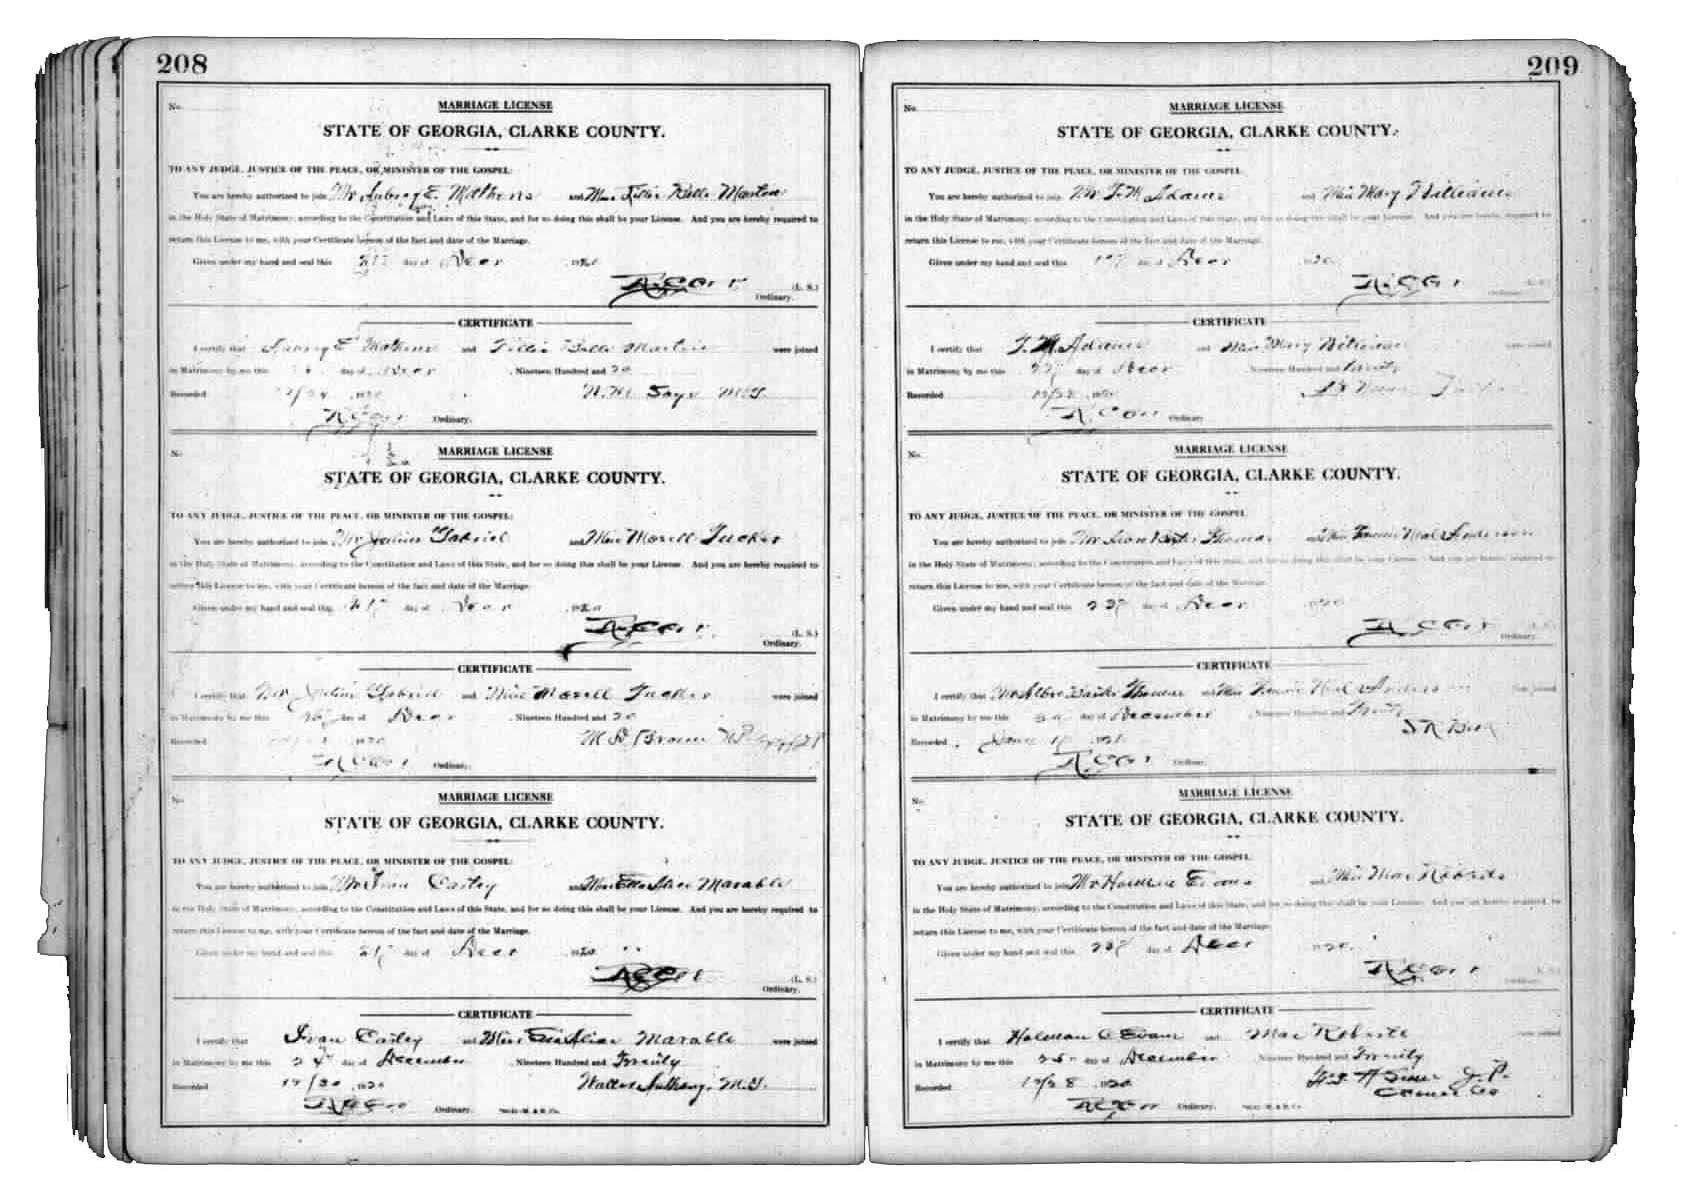 208
No.
MARRIAGE LICENSE
STATE OF GEORGIA, CLARKE COUNTY.
TO ANY JUDGE, JUSTICE OF THE PEACE, OR MINISTER OF THE GOSPEL:
You are hereby authorized to join Mr Aubrey E. Mathews and Miss Tillie Belle Martin
in the Holy State of Matrimony, according to the Constitution and Laws of this State, and for so doing this shall be your License. And you are hereby required to
return this License to me, with your Certificate hereon of the fact and date of the Marriage.
Given under my hand and seal this 21 day of Decr 1920
R.C. Orr (L. S.)
Ordinary.
CERTIFICATE
I certify that Aubrey E Mathews and Tillie Belle Martin were joined
in Matrimony by me this day of Decr , Nineteen Hundred and 20
Recorded 12/24 1920 M.G.
R C Orr Ordinary.
No.
MARRIAGE LICENSE
STATE OF GEORGIA, CLARKE COUNTY.
TO ANY JUDGE, JUSTICE OF THE PEACE, OR MINISTER OF THE GOSPEL:
You are hereby authorized to join Mr Julius Gabriel and Miss Mozell Tucker
in the Holy State of Matrimony, according to the Constitution and Laws of this State, and for so doing this shall be your License. And you are hereby required to
return this License to me, with your Certificate hereon of the fact and date of the Marriage.
Given under my hand and seal this 21 day of Decr 1920
R.C. Orr (L. S.)
Ordinary.
CERTIFICATE
I certify that Mr Julius Gabriel and Miss Mozell Tucker were joined
in Matrimony by me this day of Decr , Nineteen Hundred and 20
Recorded 1920 Brown
R C Orr Ordinary.
No.
MARRIAGE LICENSE
STATE OF GEORGIA, CLARKE COUNTY.
TO ANY JUDGE, JUSTICE OF THE PEACE, OR MINISTER OF THE GOSPEL:
You are hereby authorized to join Mr Ivan Earley and Miss Alice Marable
in the Holy State of Matrimony, according to the Constitution and Laws of this State, and for so doing this shall be your License. And you are hereby required to
return this License to me, with your Certificate hereon of the fact and date of the Marriage.
Given under my hand and seal this 21 day of Decr 1920
R C Orr (L. S.)
Ordinary.
CERTIFICATE
I certify that Ivan Earley and Miss Alice Marable were joined
in Matrimony by me this 24 day of December , Nineteen Hundred and Twenty
Recorded 12/30 1920 Walter Anthony, M.G.
R C Orr Ordinary.
209
No.
MARRIAGE LICENSE
STATE OF GEORGIA, CLARKE COUNTY.
TO ANY JUDGE, JUSTICE OF THE PEACE, OR MINISTER OF THE GOSPEL:
You are hereby authorized to join Mr T. M. Adams and Miss Mary Williams
in the Holy State of Matrimony, according to the Constitution and Laws of this State, and for so doing this shall be your License. And you are hereby required to
return this License to me, with your Certificate hereon of the fact and date of the Marriage.
Given under my hand and seal this day of Decr 1920
R.C. Orr (L. S.)
Ordinary.
CERTIFICATE
I certify that T. M. Adams and Miss Mary Williams were joined
in Matrimony by me this 22 day of Decr , Nineteen Hundred and twenty
Recorded 12/22 1920
R C Orr Ordinary.
No.
MARRIAGE LICENSE
STATE OF GEORGIA, CLARKE COUNTY.
TO ANY JUDGE, JUSTICE OF THE PEACE, OR MINISTER OF THE GOSPEL.
You are hereby authorized to join Mr Thomas and Miss Fannie Neal Anderson
in the Holy State of Matrimony, according to the Constitution and Laws of this State, and for so doing this shall be your License. And you are hereby required to
return this License to me, with your Certificate hereon of the fact and date of the Marriage.
Given under my hand and seal this 22 day of Decr 1920
R C Orr (L. S.)
Ordinary.
CERTIFICATE
I certify that Mr Thomas and Miss Fannie Neal Anderson were joined
in Matrimony by me this day of December , Nineteen Hundred and Twenty
Recorded 1921
R.C Orr Ordinary.
No.
MARRIAGE LICENSE
STATE OF GEORGIA, CLARKE COUNTY.
TO ANY JUDGE, JUSTICE OF THE PEACE, OR MINISTER OF THE GOSPEL.
You are hereby authorized to join Mr Holman Evans and Miss Mae Roberts
in the Holy State of Matrimony, according to the Constitution and Laws of this State, and for so doing this shall be your License. And you are hereby required, to
return this License to me, with your Certificate hereon of the fact and date of the Marriage.
Given under my hand and seal this 22 day of Decr 1920
R.C Orr (L. S.)
Ordinary.
CERTIFICATE
I certify that Holeman C Evans and Mae Roberts were joined
in Matrimony by me this 25 day of December , Nineteen Hundred and Twenty
Recorded 12/28 1920 J. P.
Oconee Co
R C Orr Ordinary.